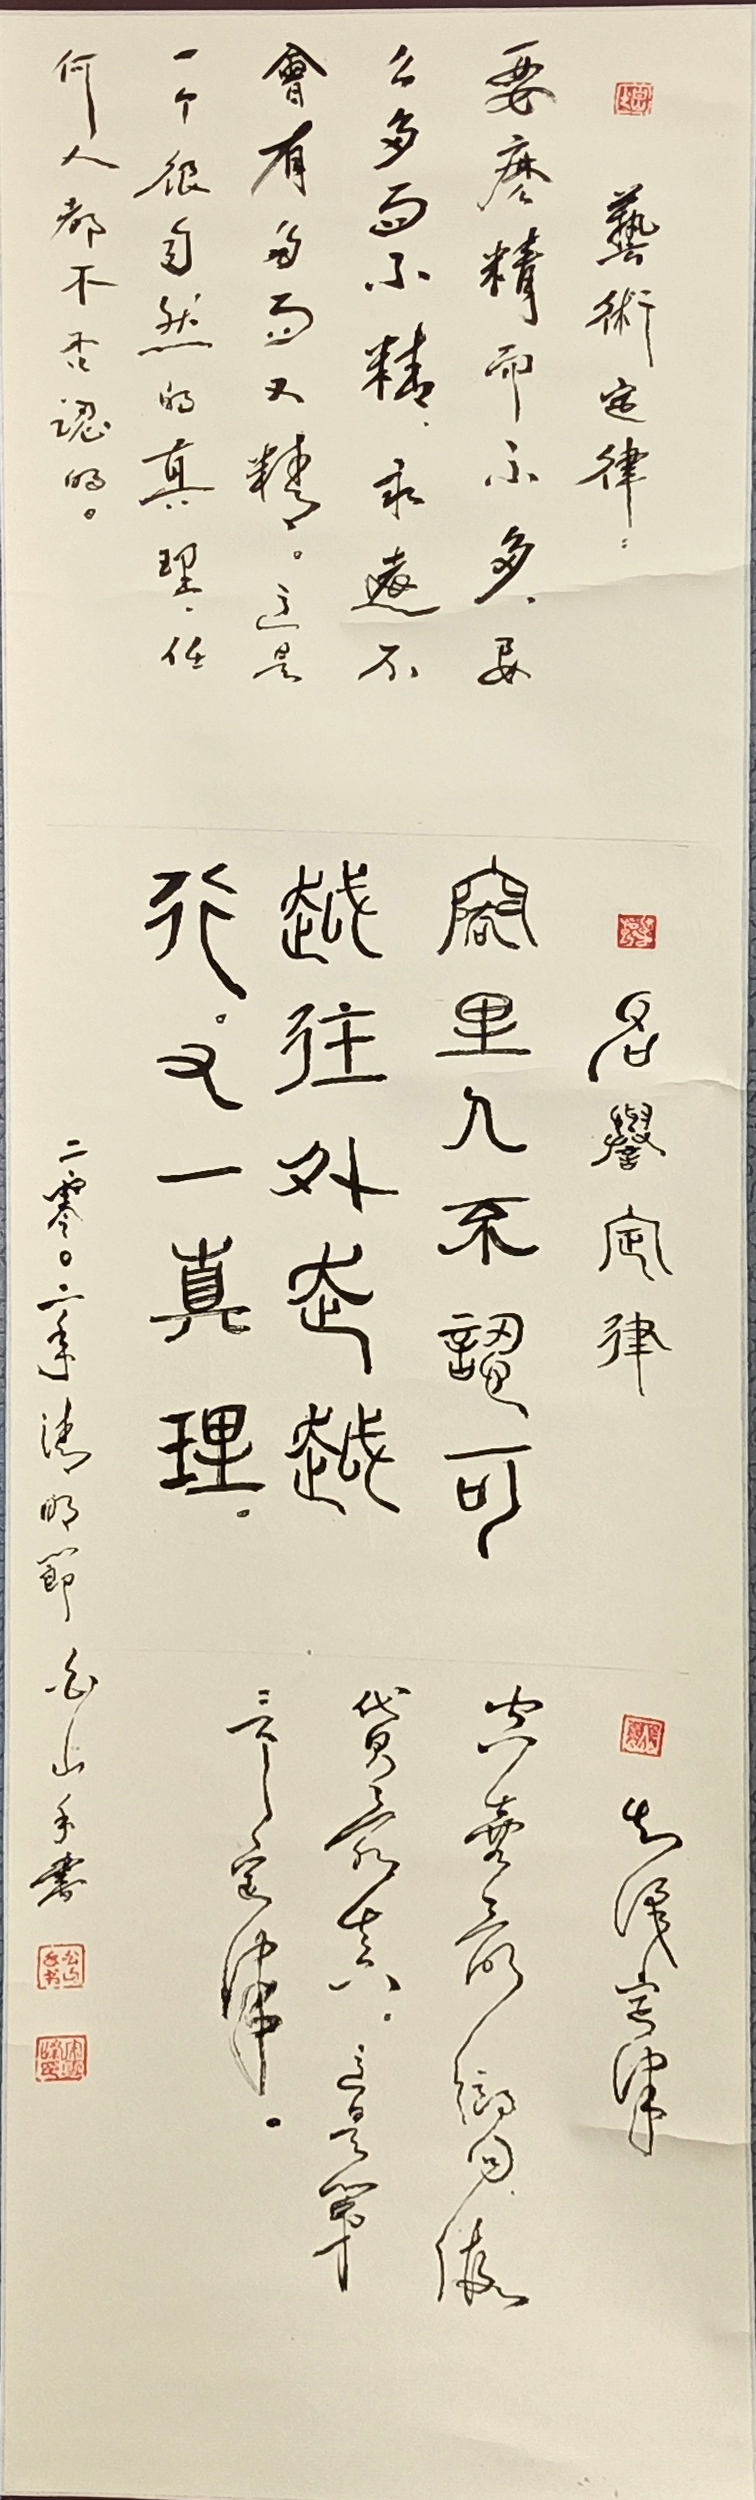 藝術定律：
要麽精而不多，要
么多而不精，永遠不
會有多而又精。这是
一个很自然的真理，任
何人都不否認的。
名譽定律
里人不認可
越往外走越
行。又一真理。
定律
貨最真。这是第
三个定律。
二零〇二年清明節 山手書